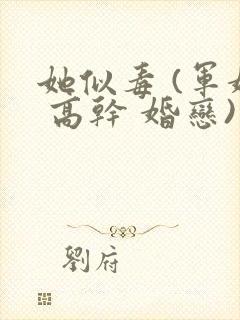 她似毒 (軍婚
高幹 婚戀)
劉府